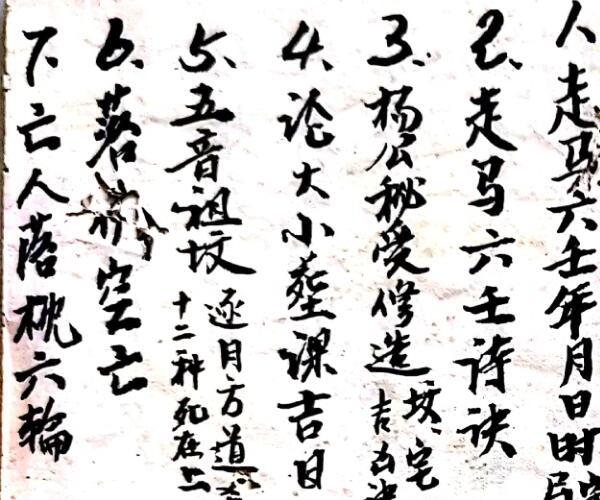 1、走马六壬年月日时
2、走马六壬诗诀
3、杨公秘受修造坟、宅
吉凶
4、论大小葬课吉日
5、五音祖坟逐月方道
十二种死在上
6、落 空亡
7、亡人落枕六轮